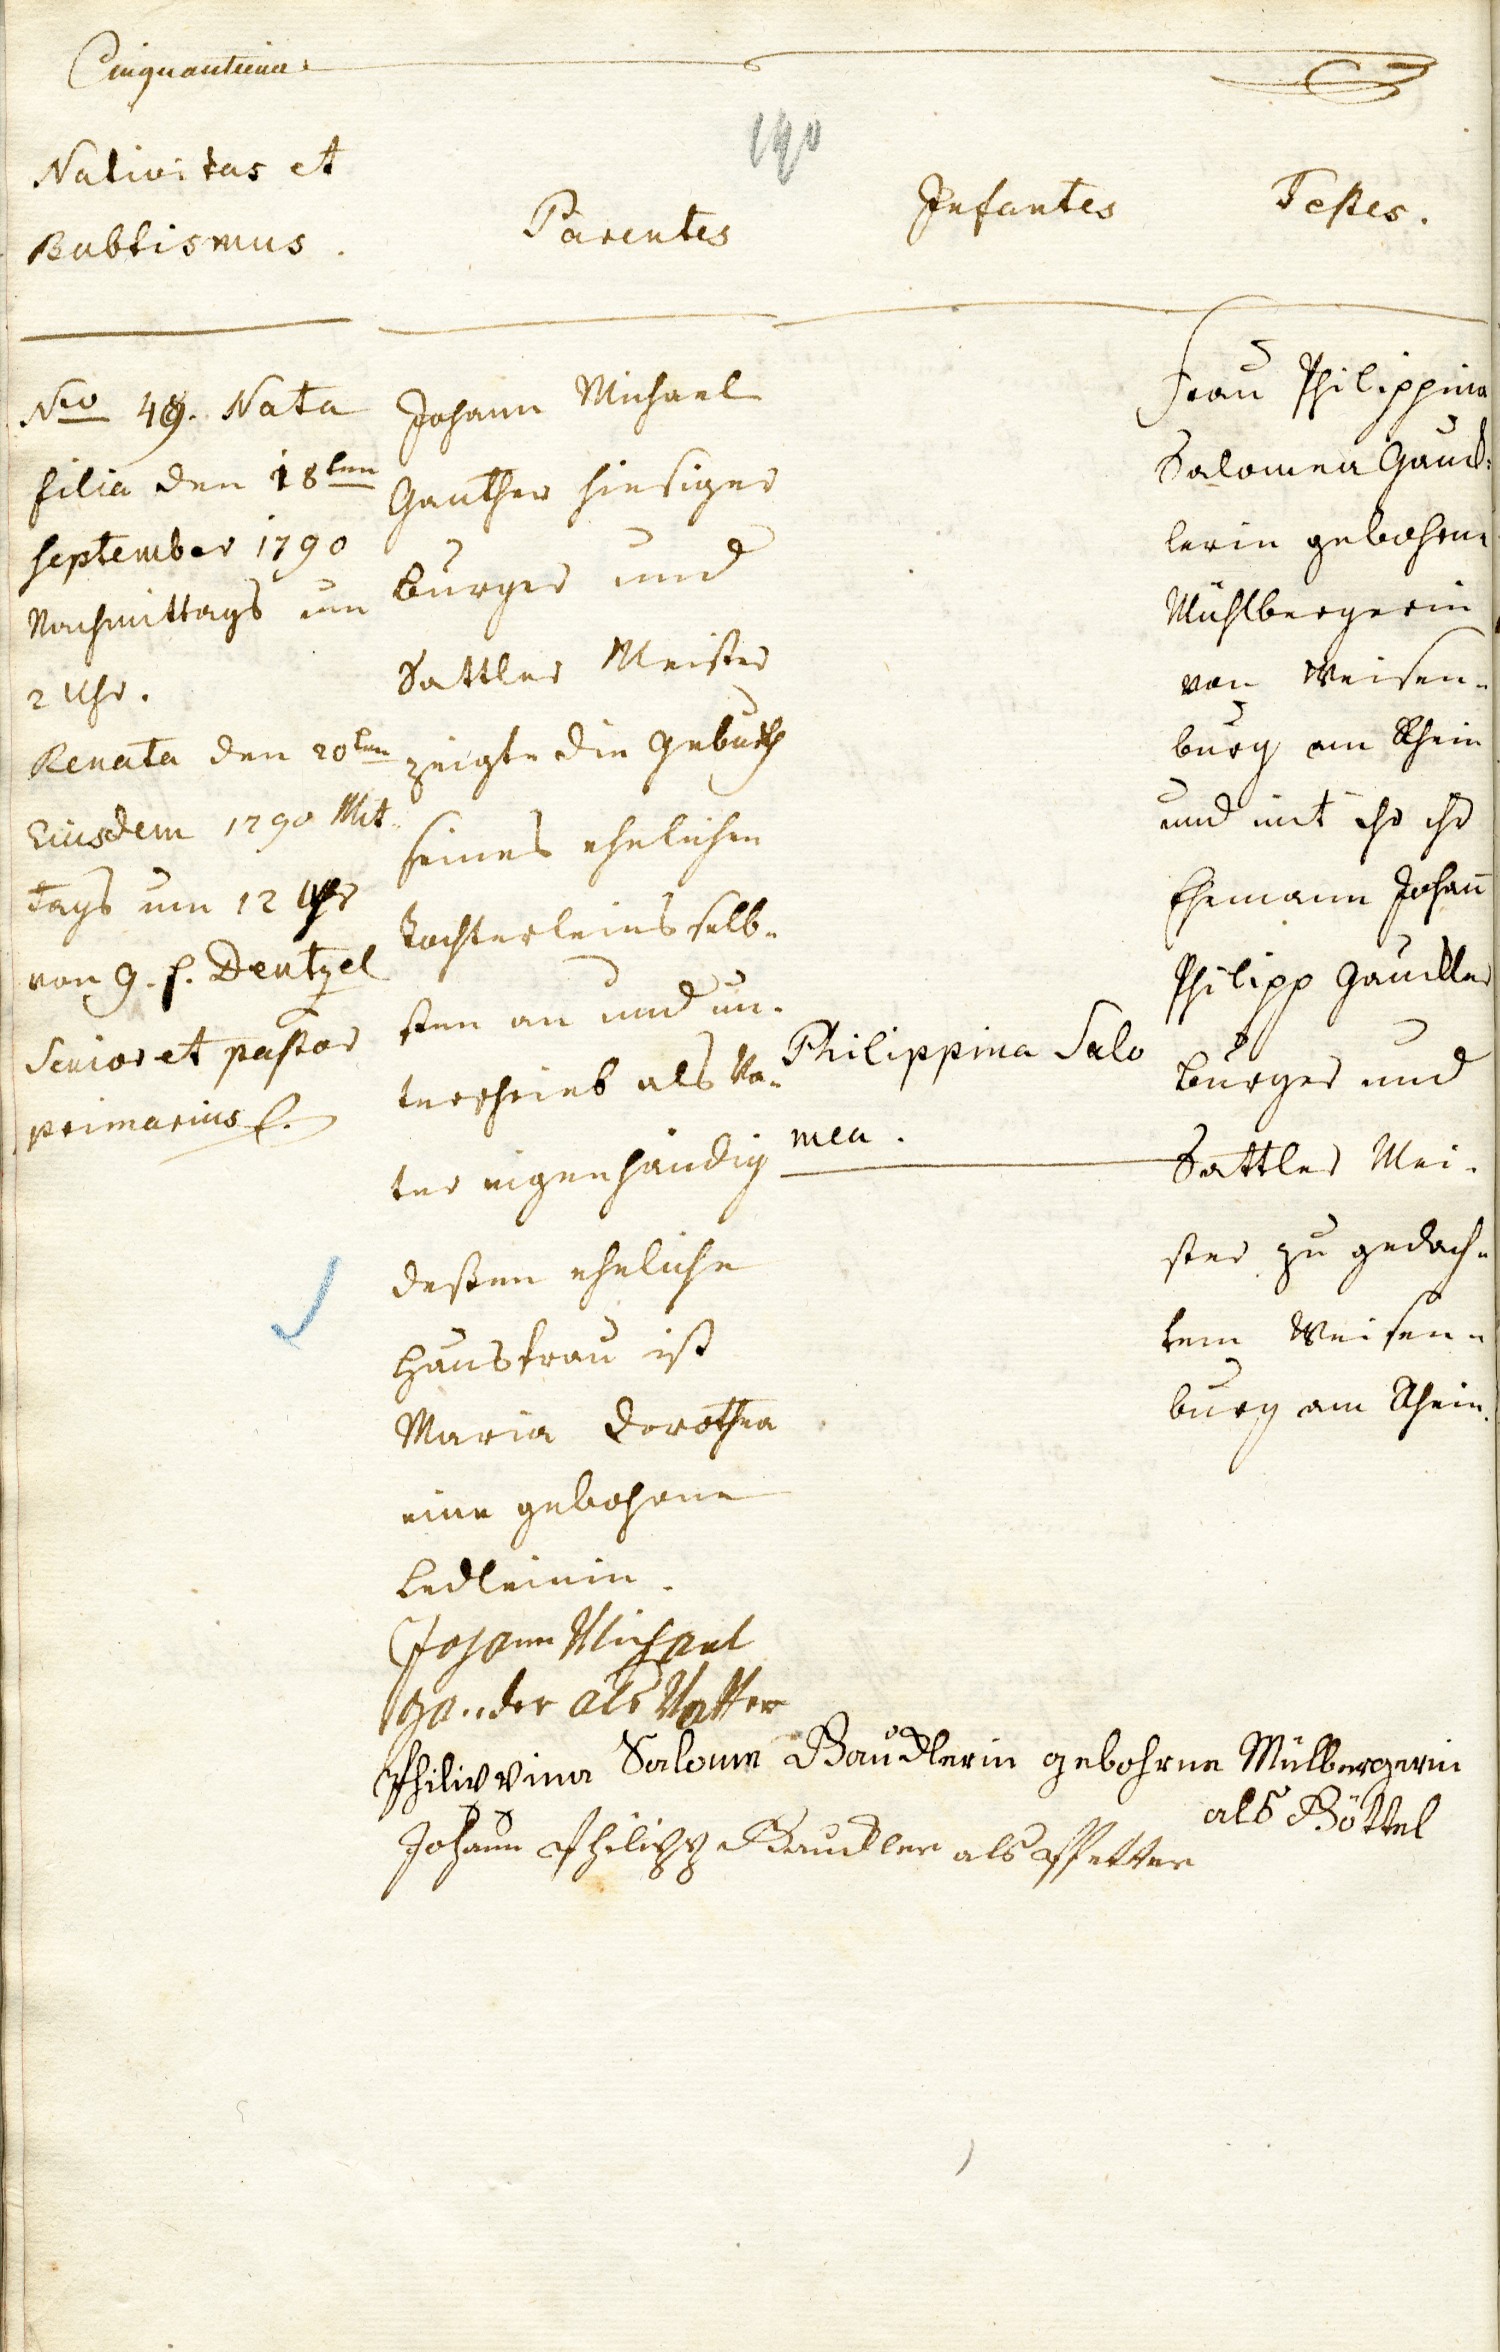 Cinquantieme.
190
Nativitas et
Babtismus.
Parentes
Infantes
Testes.
Nro 49. Nata
filia den 18ten
September 1790
Nachmittags um
2 Uhr.
Renata den 20ten
Eiusdem 1790 Mit-
tags um 12 Uhr
von g. f. Dentzel
Senior et pastor
primarius
Johann Michael
Ganther hiesiger
burger und
Sattler Meister
zeigte die geburth
seines ehelichen
tochterleins selb-
sten an und un-
terschrieb als Va-
ter eigenhändig
deßen eheliche
hausfrau ist
Maria Dorothea
eine gebohrne
Ledleinin.
Philippina Salo
mea.
Frau Philippina
Salomea Gaud-
lerin gebohrne
Mühlbergerin
von Weisen-
burg am Rhein
und mit ihr ihr
Ehemann Johann
Philipp Gaudler
burger und
Sattler Mei-
ster zu gedach-
tem Weisen-
burg am Rhein.
Johann Michael
gander als Vatter
Philippina Salome Gaudlerin gebohrne Mülbergerin
als Göttel
Johann Philipp Gaudler als Pfetter